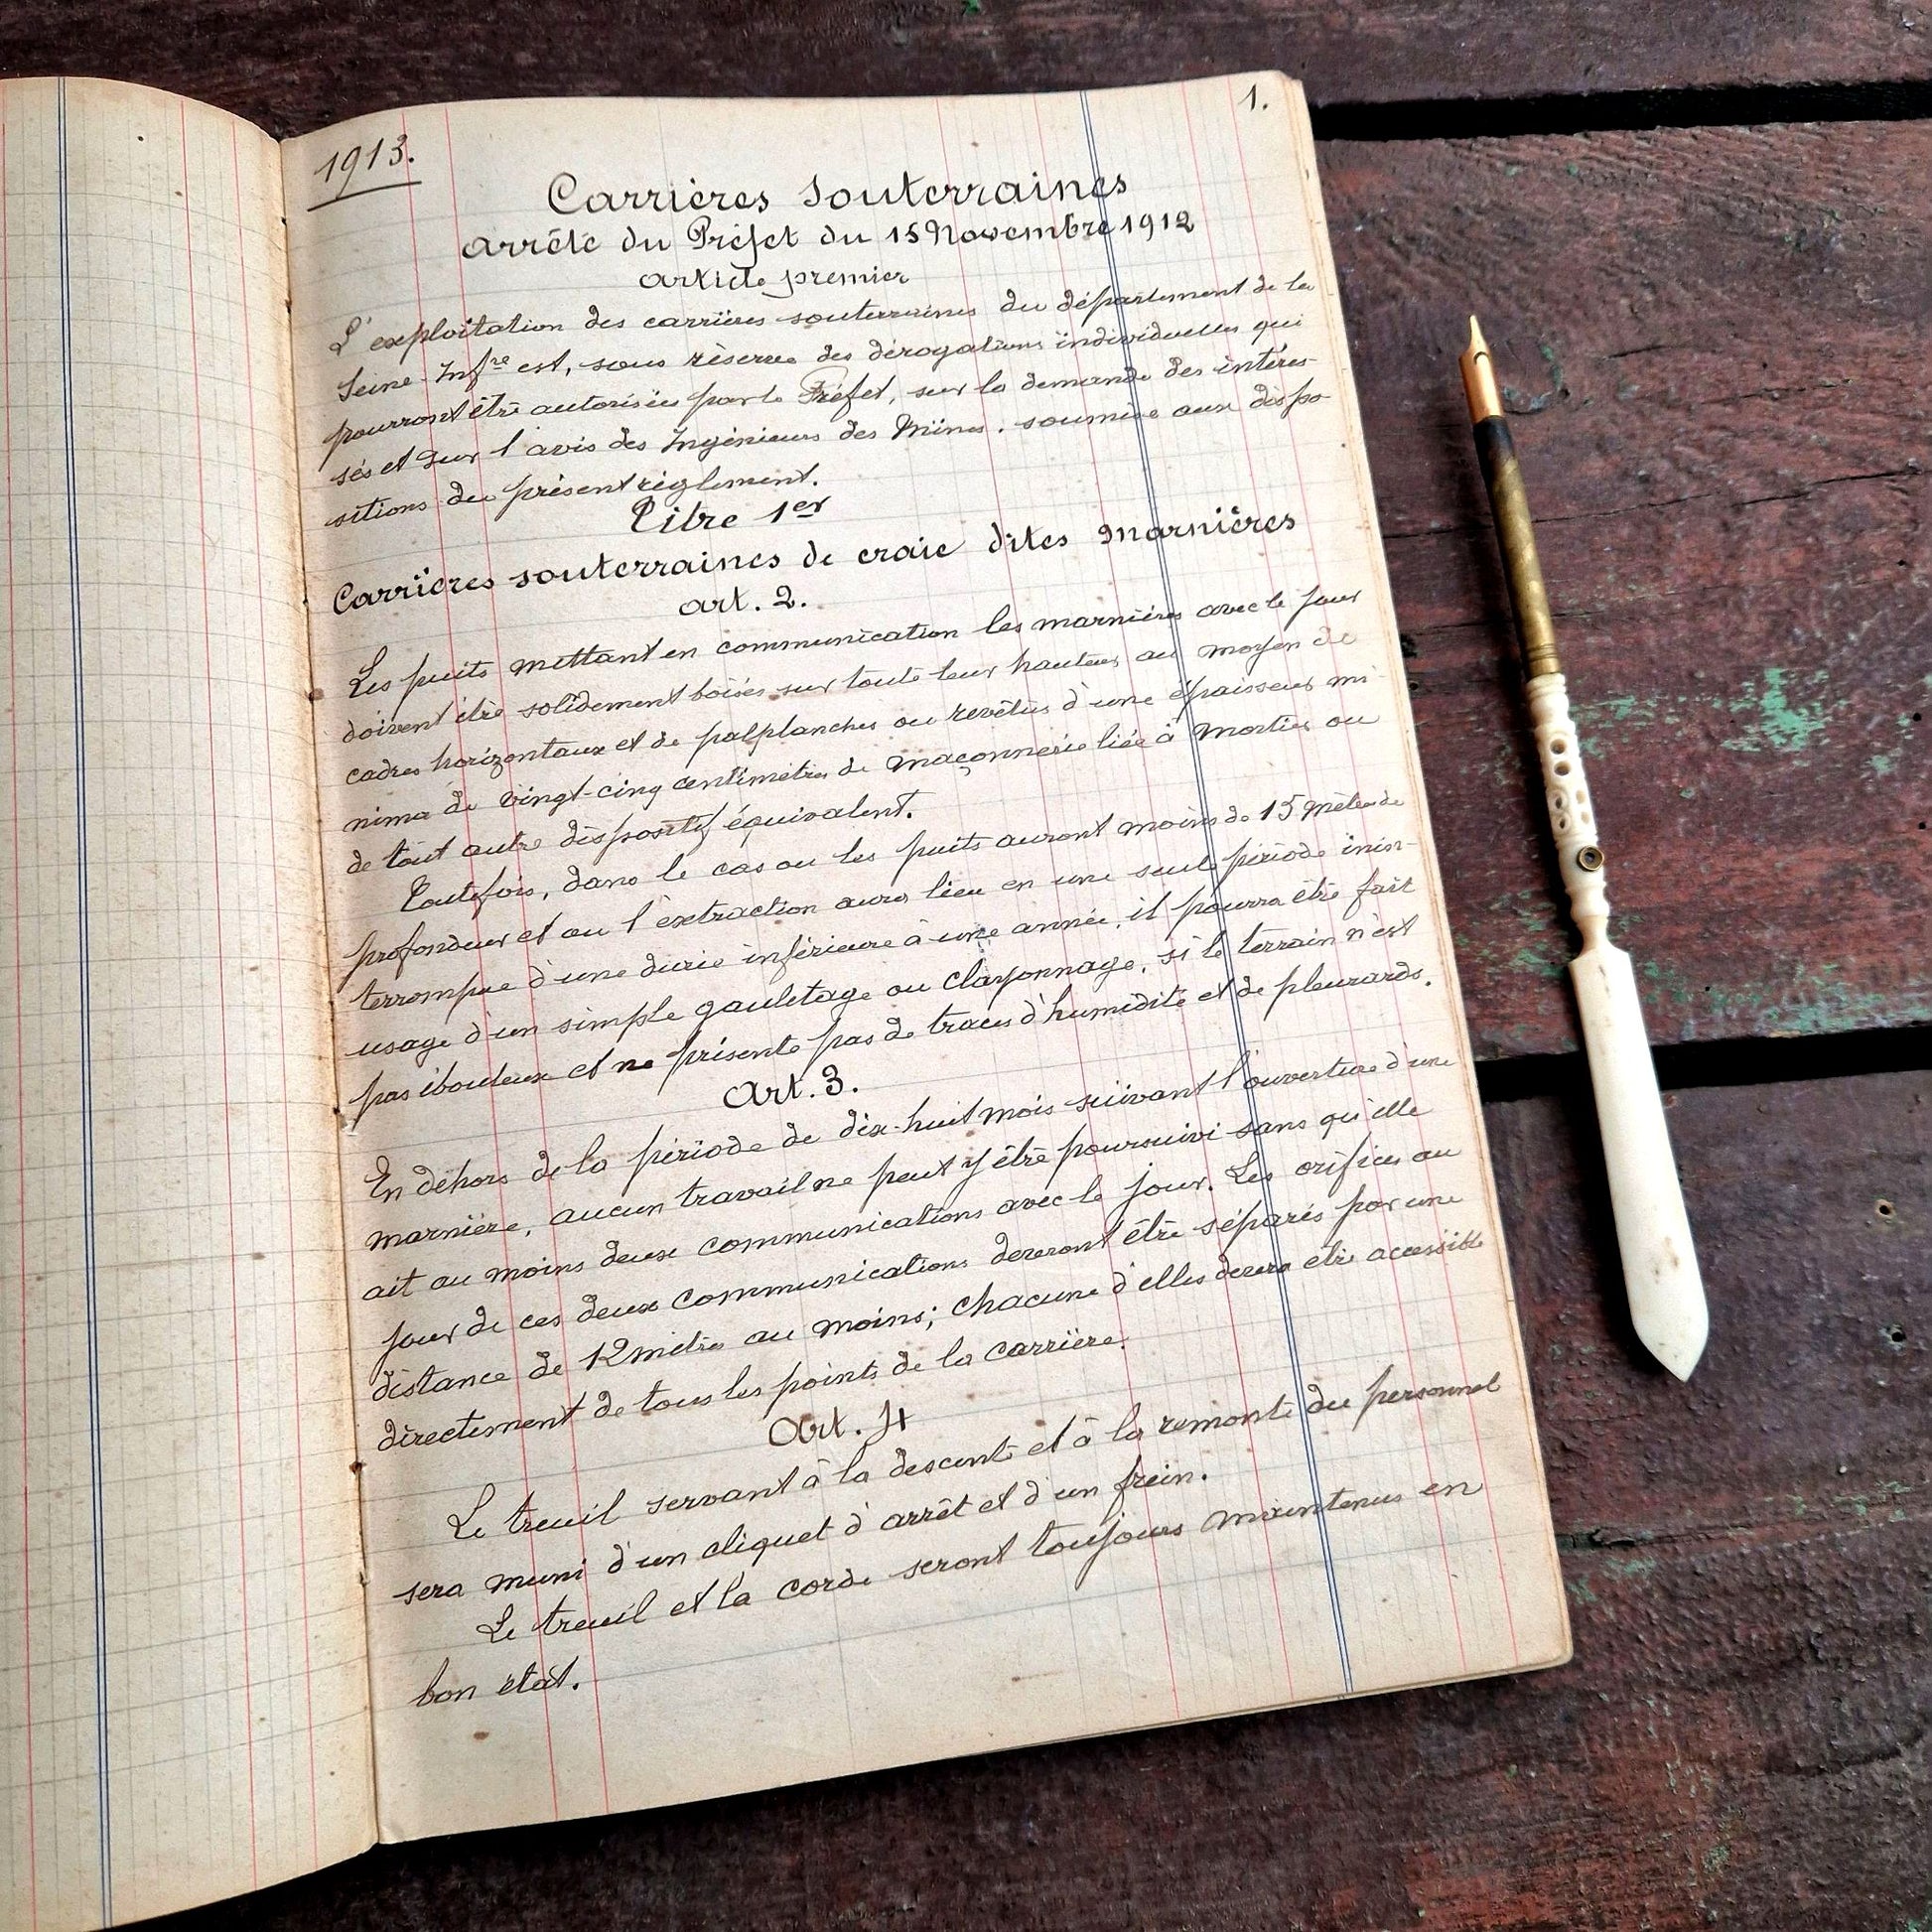 1.
1913.
Carrières Souterraines
arrêté du Préfet du 15 Novembre 1912
article premier
L'exploitation des carrières souterraines du département de la
Seine-Infre est, sous réserve des dérogations individuelles qui
pourront être autorisées par le Préfet, sur la demande des intéres-
sés et sur l'avis des Ingénieurs des Mines, soumise aux dispo-
sitions du présent règlement.
Titre 1er
Carrières souterraines de craie dites Marnières
art. 2.
Les puits mettant en communication les marnières avec le jour
doivent être solidement boisés sur toute leur hauteur au moyen de
cadres horizontaux et de palplanches ou revêtus d'une épaisseur mi-
nima de vingt-cinq centimètres de maçonnerie liée à mortier ou
de tout autre dispositif équivalent.
Toutefois, dans le cas ou les puits auront moins de 15 mètres de
profondeur et ou l'extraction aura lieu en une seule période inin-
terrompue d'une durée inférieure à une année, il pourra être fait
usage d'un simple gauletage ou clayonnage, si le terrain n'est
pas ébouleux et ne présente pas de traces d'humidité et de pleurards.
Art. 3.
En dehors de la période de dix-huit mois suivant l'ouverture d'une
marnière, aucun travail ne peut y être poursuivi sans qu'elle
ait au moins deux communications avec le jour. Les orifices au
jour de ces deux communications devront être séparés par une
distance de 12 mètres au moins; chacune d'elles devra être accessible
directement de tous les points de la carrière.
Art. 4
Le treuil servant à la descente et à la remonte du personnel
sera muni d'un cliquet d'arrêt et d'un frein.
Le treuil et la corde seront toujours maintenus en
bon état.